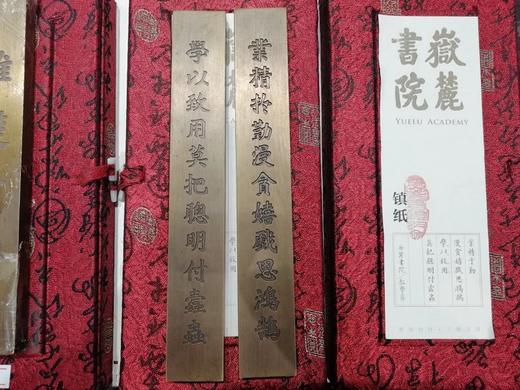 嶽麓
書院
YUELU ACADEMY
镇纸
業精于勤
漫貪嬉戲思鴻鵠
學以致用
莫把聰明付蠹蟲
業精扵勤漫貪嬉戲思鴻鵠
學以致用莫把聰明付蠹蟲
學以致用